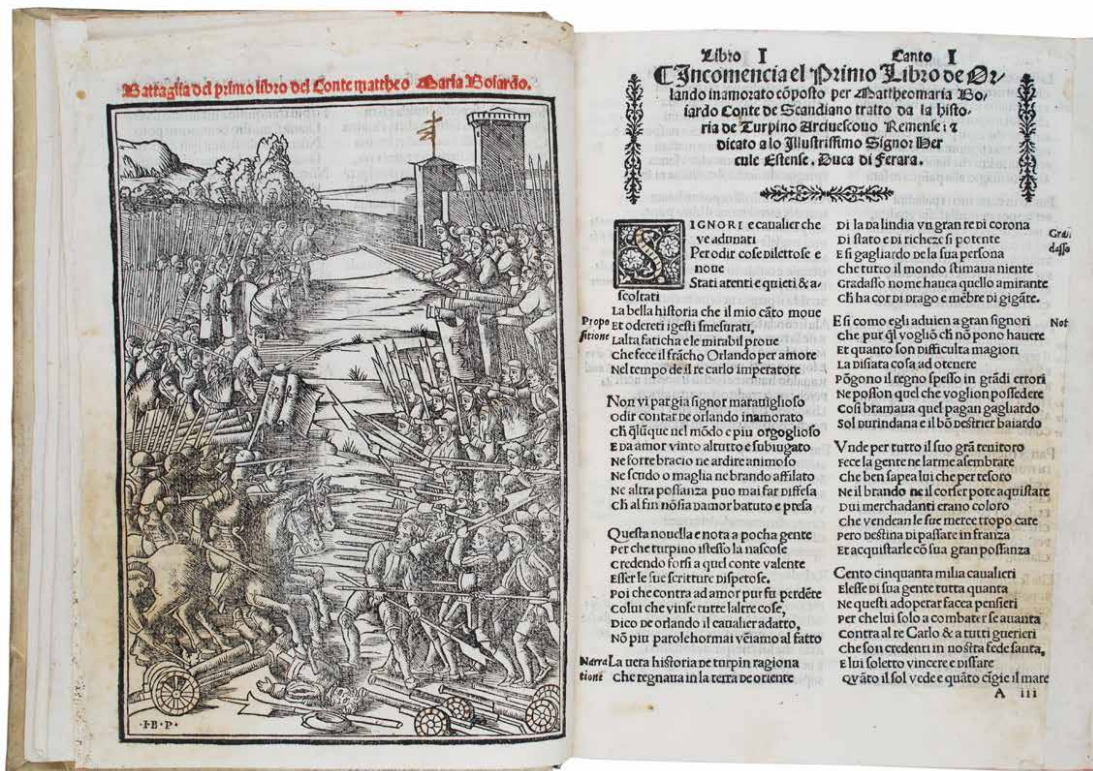 Battaglia del primo libro del Conte mattheo Maria Boiardo.
·I·B·P·
Libro I Canto I
⸿Incomencia el Primo Libro de Or-
lando inamorato cōposto per Mattheomaria Bo-
iardo Conte de Scandiano tratto da la histo-
ria de Turpino Arciuescouo Remense: ⁊
dicato a lo Illustrissimo Signor Her
cule Estense. Duca di Ferara.
SIGNORI e caualier che
ve adunati
Per odir cose dilettose e
noue
Stati atenti e quieti & a-
scoltati
La bella historia che il mio cāto moue
Propo
sitione
Et odereti i gesti smesurati,
Lalta faticha e le mirabil proue
Che fece il frācho Orlando per amore
Nel tempo de il re carlo imperatote
Non vi par gia signor marauiglioso
Odir contar de orlando inamorato
Ch q̄lūque nel mōdo e piu orgoglioso
E da amor vinto al tutto e subiugato
Ne forte bracio ne ardire animoso
Ne scudo o maglia ne brando affilato
Ne altra possanza puo mai far diffesa
Ch al fin nō sia damor batuto e presa
Questa nouella e nota a pocha gente
Per che turpino istesso la nascose
Credendo forsi a quel conte valente
Esser le sue scritture dispetose,
Poi che contra ad amor pur fu perdēte
Colui che vinse tutte laltre cose,
Dico de orlando il caualier adatto,
Nō piu parole hormai vēiamo al fatto
Narra
tione
La uera historia de turpin ragiona
Che regnaua in la terra de oriente
Di la da lindia vn gran re di corona
Di stato e di richeze si potente
E si gagliardo de la sua persona
Che tutto il mondo stimaua niente
Gradasso nome hauea quello amirante
Ch ha cor di drago e mēbre di gigāte.
Gra
dasso
E si como egli aduien a gran signori
Che pur q̄l voglio ch nō pono hauere
Not
Et quanto son difficulta magiori
La disiata cosa ad otenere
Pōgono il regno spesso in grādi errori
Ne posson quel che voglion possedere
Cosi bramaua quel pagan gagliardo
Sol durindana e il bō destrier baiardo
Vnde per tutto il suo grā tenitoro
Fece la gente ne larme asembrare
Che ben sapea lui che per tesoro
Ne il brando ne il corser pote aquistare
Dui merchadanti erano coloro
Che vendean le sue merce tropo care
Pero destina di passare in franza
Et acquistarle cō sua gran possanza
Cento cinquanta milia caualieri
Elesse di sua gente tutta quanta
Ne questi adoperar facea pensieri
Per che lui solo a combater se auanta
Contra al re Carlo & a tutti guerieri
Che son credenti in nostra fede santa,
E lui soletto vincere e disfare
Quāto il sol vede e quāto cīgie il mare
A iii